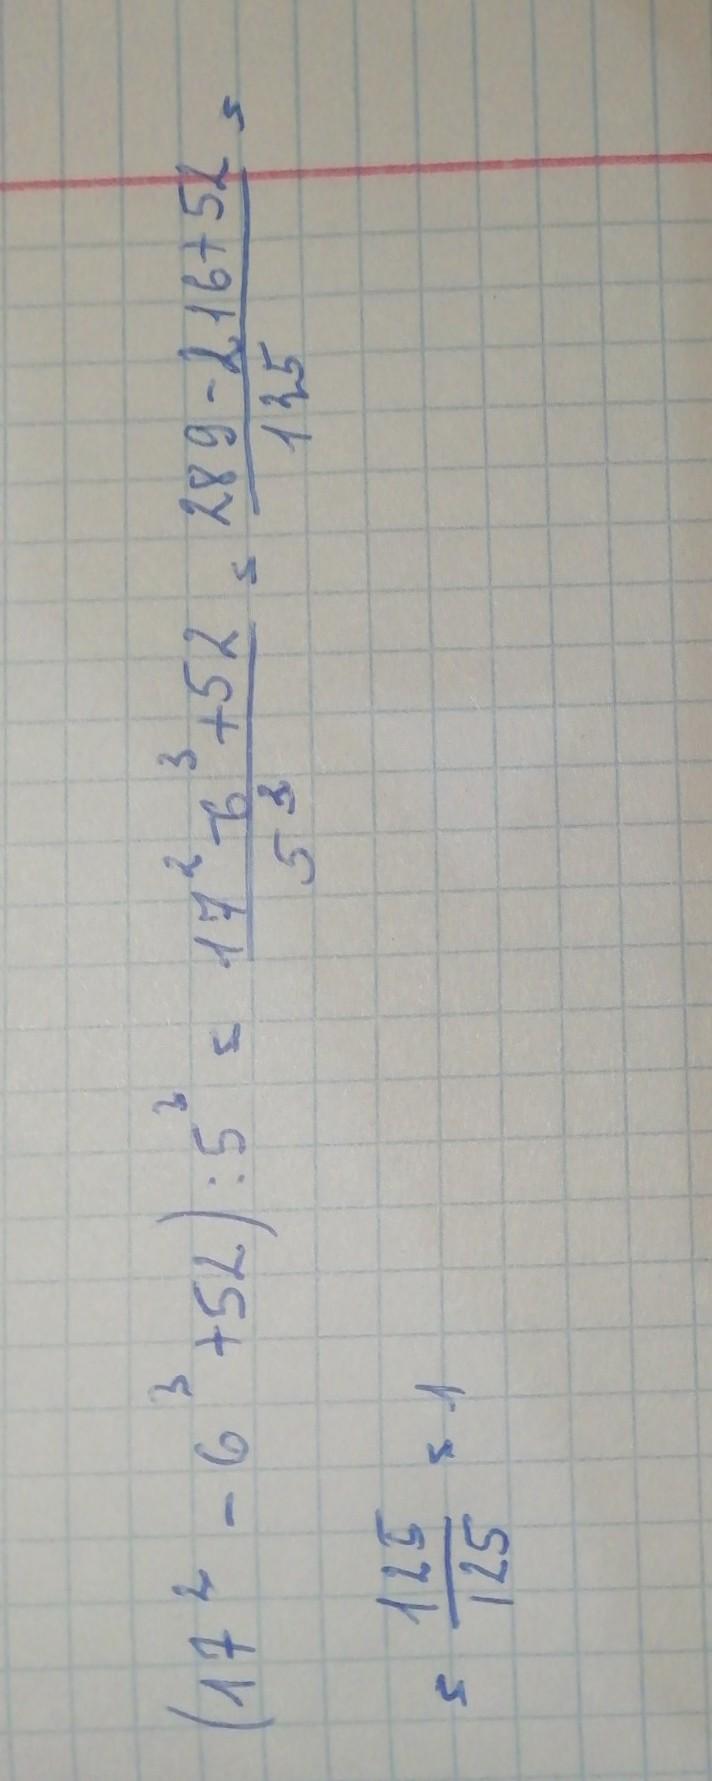 (17² - 6³ + 52) : 5³ = 17² - 6³ + 52 / 5³ = 289 - 216 + 52 / 125 =
= 125 / 125 = 1